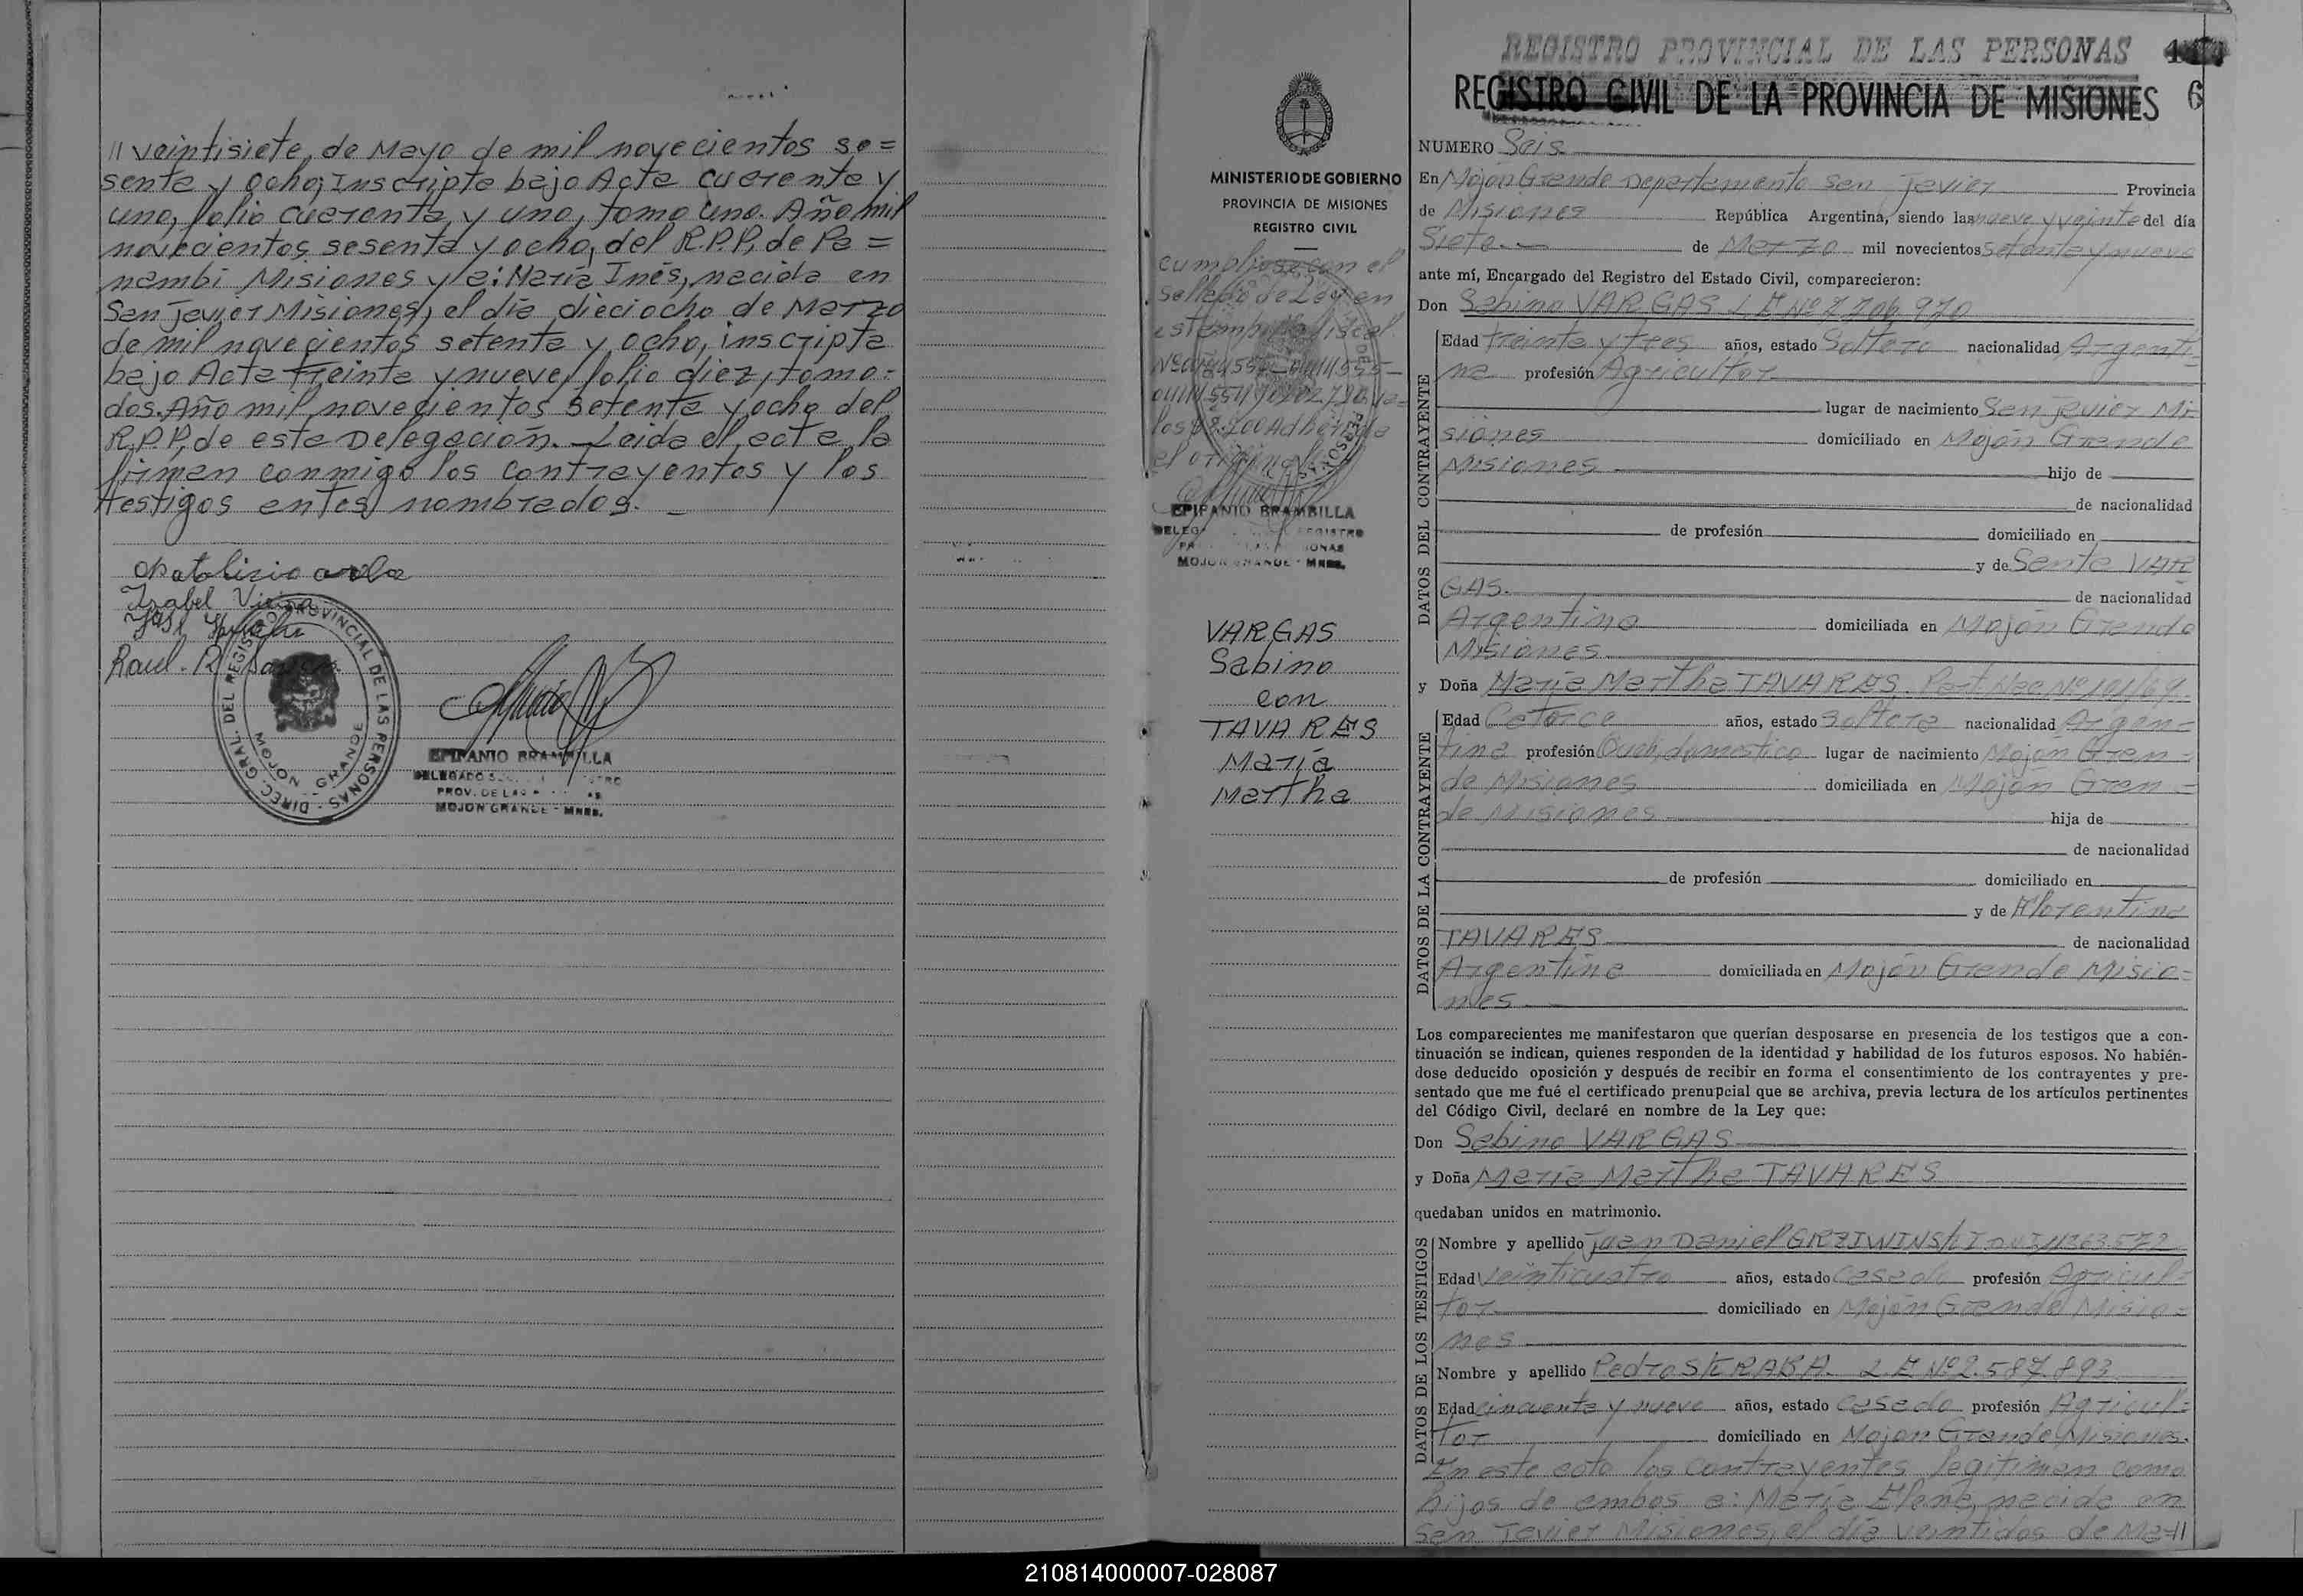 // veintisiete, de Mayo de mil novecientos se=
senta y ocho, Inscripta bajo Acta cuarenta y
uno, folio cuarenta y uno, tomo uno. Año mil
novecientos sesenta y ocho, del R.P.P, de Pa=
nambí Misiones y a: María Inés, nacida en
San Javier Misiones, el día dieciocho de Marzo
de mil novecientos setenta y ocho, inscripta
bajo Acta treinta y nueve, folio diez, tomo-
dos. Año mil novecientos setenta y ocho del
R.P.P, de esta Delegación. - Leida el acta, la
firman conmigo los contrayentes y los
testigos antes nombrados. -
Isabel
Raul
DIREC. GRAL. DEL REGISTRO PROVINCIAL DE LAS PERSONAS
MOJON GRANDE
EPIFANIO BRAMBILLA
DELEGADO
PROV. DE LAS
MOJON GRANDE - MNES.
MINISTERIO DE GOBIERNO
PROVINCIA DE MISIONES
REGISTRO CIVIL
cumpliose con el
sellado de Ley en
estampilla fiscal
el original
EPIFANIO BRAMBILLA
MOJON GRANDE - MNES.
VARGAS
Sabino
con
TAVARES
María
Martha
REGISTRO PROVINCIAL DE LAS PERSONAS
REGISTRO CIVIL DE LA PROVINCIA DE MISIONES 6
NUMERO Seis
En Mojón Grande Departamento San Javier Provincia
de Misiones República Argentina, siendo las nueve y veinte del día
Siete.- de Marzo mil novecientos setenta y nueve
ante mí, Encargado del Registro del Estado Civil, comparecieron:
Don Sabino VARGAS L E Nº 7.706.970
DATOS DEL CONTRAYENTE
Edad treinta y tres años, estado Soltero nacionalidad Argenti-
na profesión Agricultor
lugar de nacimiento San Javier Mi-
siones domiciliado en Mojón Grande
Misiones hijo de
de nacionalidad
de profesión domiciliado en
y de Santa VAR
GAS. de nacionalidad
Argentina domiciliada en Mojón Grande
Misiones
y Doña María Martha TAVARES.
DATOS DE LA CONTRAYENTE
Edad Catorce años, estado Soltera nacionalidad Argen-
tina profesión Queh. domestico lugar de nacimiento Mojon Gran-
de Misiones domiciliada en Mojón Gran-
de Misiones hija de
de nacionalidad
de profesión domiciliado en
y de Florentina
TAVARES de nacionalidad
Argentina domiciliada en Mojón Grande Misio-
nes
Los comparecientes me manifestaron que querían desposarse en presencia de los testigos que a con-
tinuación se indican, quienes responden de la identidad y habilidad de los futuros esposos. No habién-
dose deducido oposición y después de recibir en forma el consentimiento de los contrayentes y pre-
sentado que me fué el certificado prenupcial que se archiva, previa lectura de los artículos pertinentes
del Código Civil, declaré en nombre de la Ley que:
Don Sabino VARGAS
y Doña María Martha TAVARES
quedaban unidos en matrimonio.
DATOS DE LOS TESTIGOS
Nombre y apellido Juan Daniel GRZIWINSkI DNI 11.363.572
Edad veinticuatro años, estado casado profesión Agricul-
tor domiciliado en Mojón Grande Misio-
nes
Nombre y apellido Pedro SKRABA. L.E Nº 2.587.893
Edad cincuenta y nueve años, estado casado profesión Agricul-
tor domiciliado en Mojon Grande Misiones.
En este acto los contrayentes legitiman como
hijos de ambos a: María Elena, nacida en
San Javier Misiones, el día veintidos de Ma-//
210814000007-028087